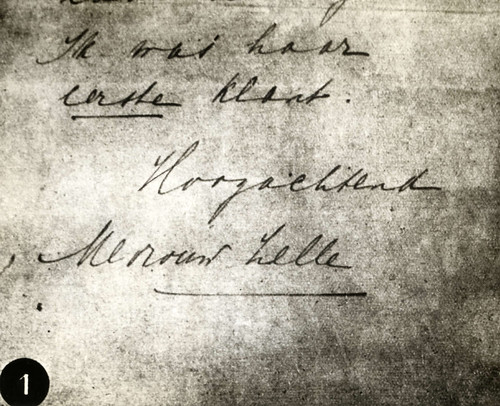 Ik was haar
eerste klant.
Hoogachtend
Mevrouw Lelle
1